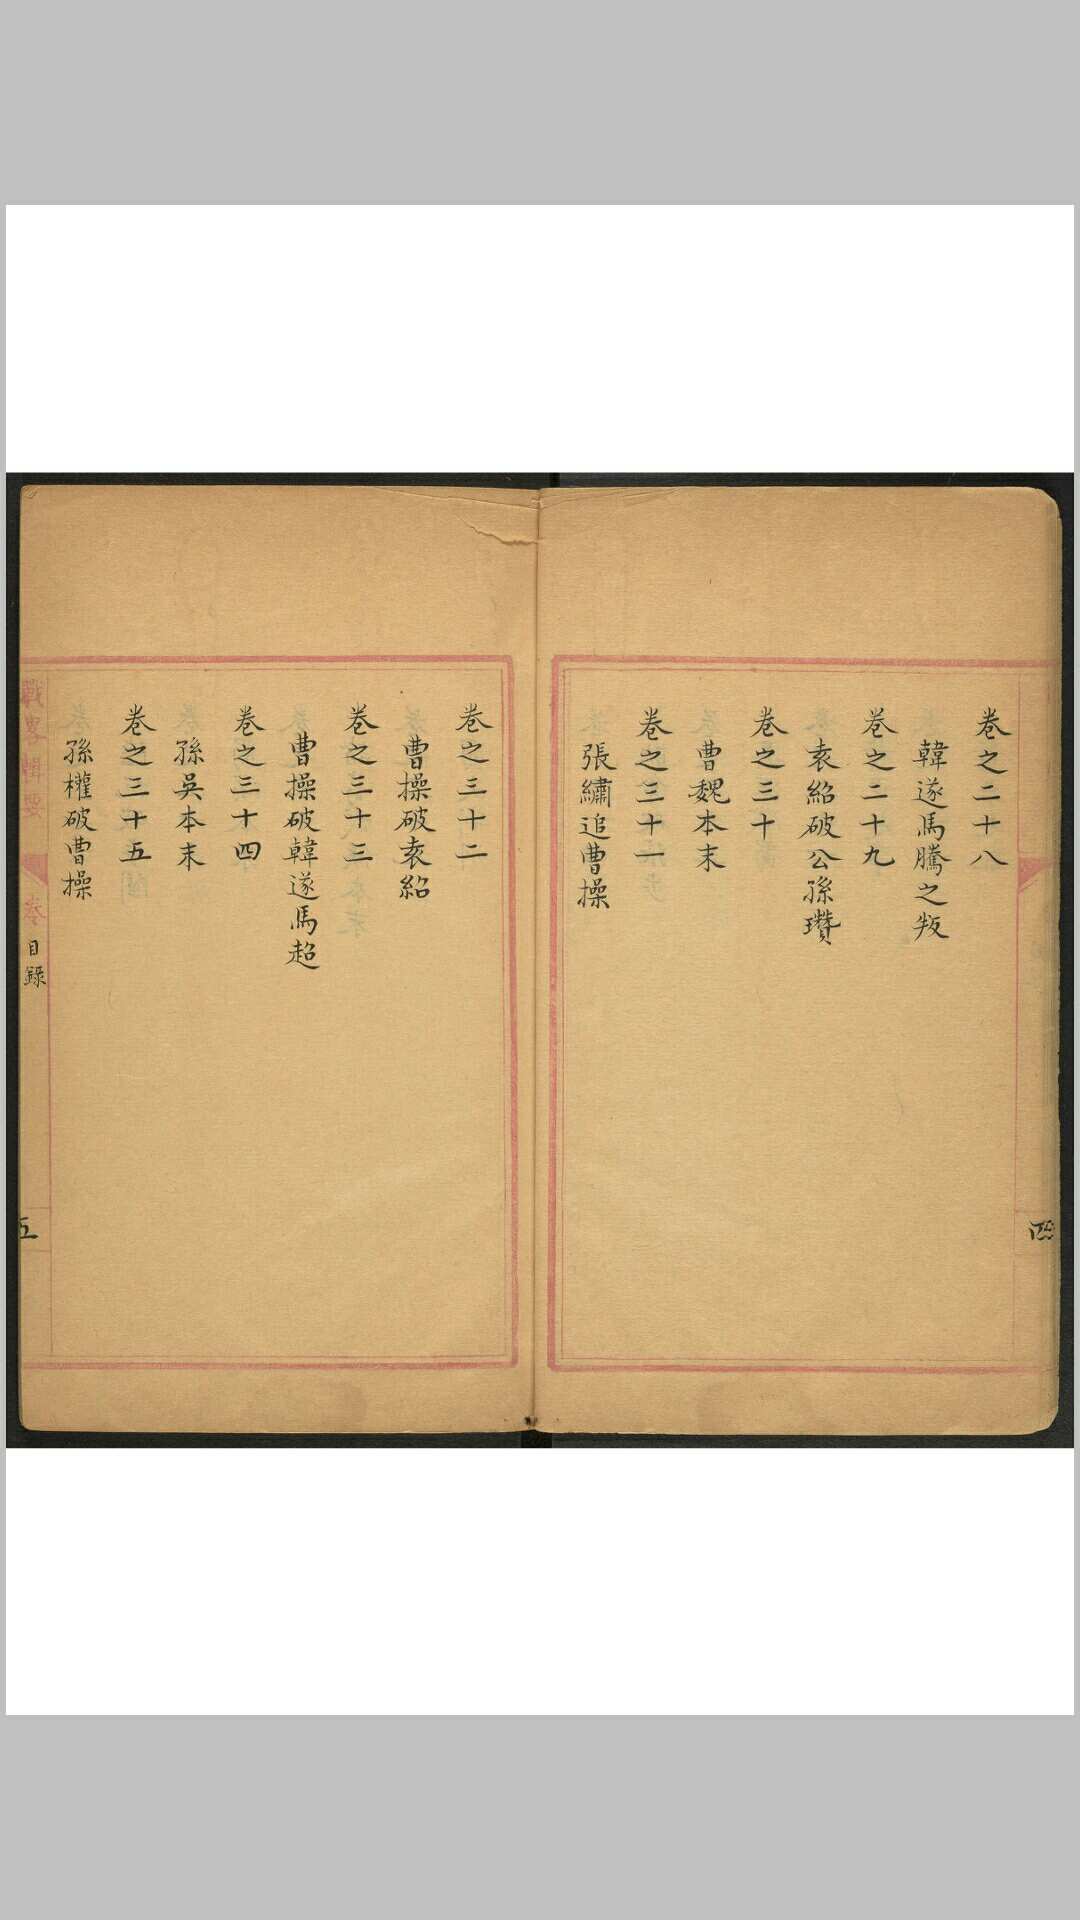 卷之二十八
韓遂馬騰之叛
卷之二十九
袁紹破公孫瓚
卷之三十
曹魏本末
卷之三十一
張繡追曹操
四
卷之三十二
曹操破袁紹
卷之三十三
曹操破韓遂馬超
卷之三十四
孫吳本末
卷之三十五
孫權破曹操
卷
目錄
五